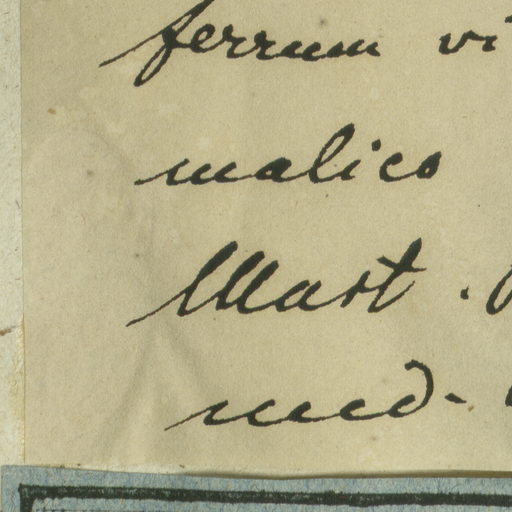 ferrum vi
malico
Mart.
med-